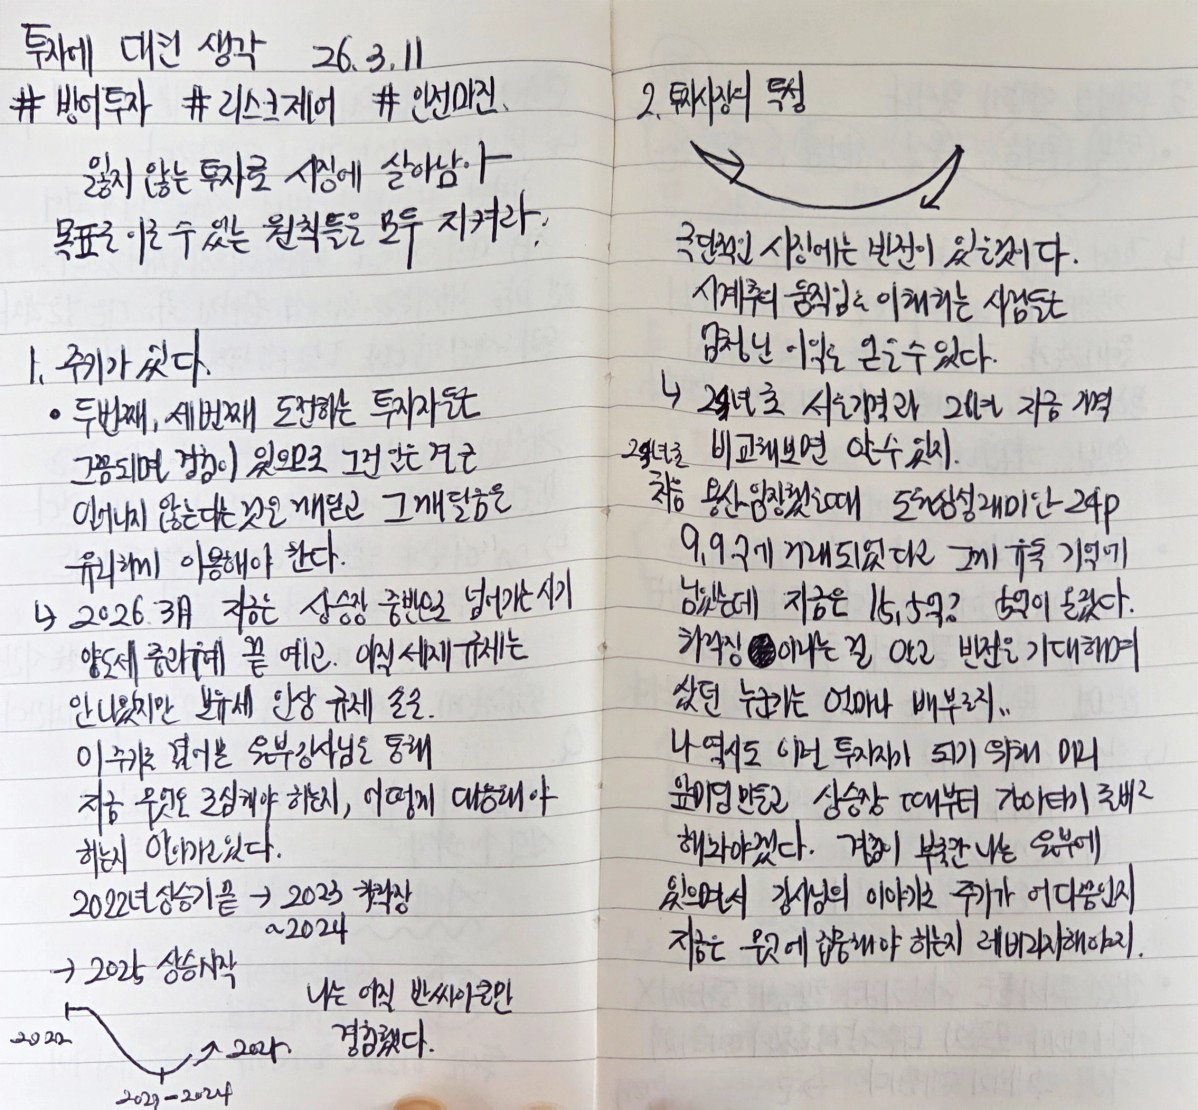 투자에 대한 생각 26.3.11
# 방어투자 # 리스크제어 # 안전마진.
잃지 않는 투자로 시장에 살아남아
목표를 이룰 수 있는 원칙들을 모두 지켜라.
1. 주기가 있다.
• 두번째, 세번째 도전하는 투자자들은
그쯤되면 경험이 있으므로 그런 같은 결론
일어나지 않는다는 것을 깨닫고 그 깨달음은
유리하게 이용해야 한다.
↳ 2026. 3月 지금은 상승장 중반으로 넘어가는 시기
양도세 중과유예 끝 예고. 아직 세제규제는
안나왔지만 보유세 인상 규제 솔솔.
이 주기를 겪어본 월부강사님을 통해
지금 무엇을 조심해야 하는지, 어떻게 대응해야
하는지 알아가고 있다.
2022년 상승기 끝 → 2023 하락장
~2024
→ 2025 상승시작
나는 아직 반싸이클만
경험했다.
2022
2025.
2023-2024
2. 투자시장의 특성
극단적인 시장에는 반전이 있을것이다.
시계추의 움직임을 이해하는 사람들은
엄청난 이익을 얻을 수 있다.
↳ 24년초 서울가격과 26년 지금 가격
비교해보면 알 수 있지.
24년초
처음 용산 임장했을때 도원삼성래미안 24p
9.9.7에 거래되었다고 그게 유독 기억에
남았는데 지금은 15, 5억 5억이 올랐다.
하락장 이라는 걸 알고 반전을 기대하며
샀던 누군가는 얼마나 배부르지..
나 역시도 이런 투자자가 되기 위해 미리
앞마당 만들고 상승장 때부터 갈아타기 준비2
해놔야겠다. 경험이 부족한 나는 월부에
있으면서 강사님의 이야기로 주기가 어디쯤인지
지금은 무엇에 집중해야 하는지 레버리지해야지.